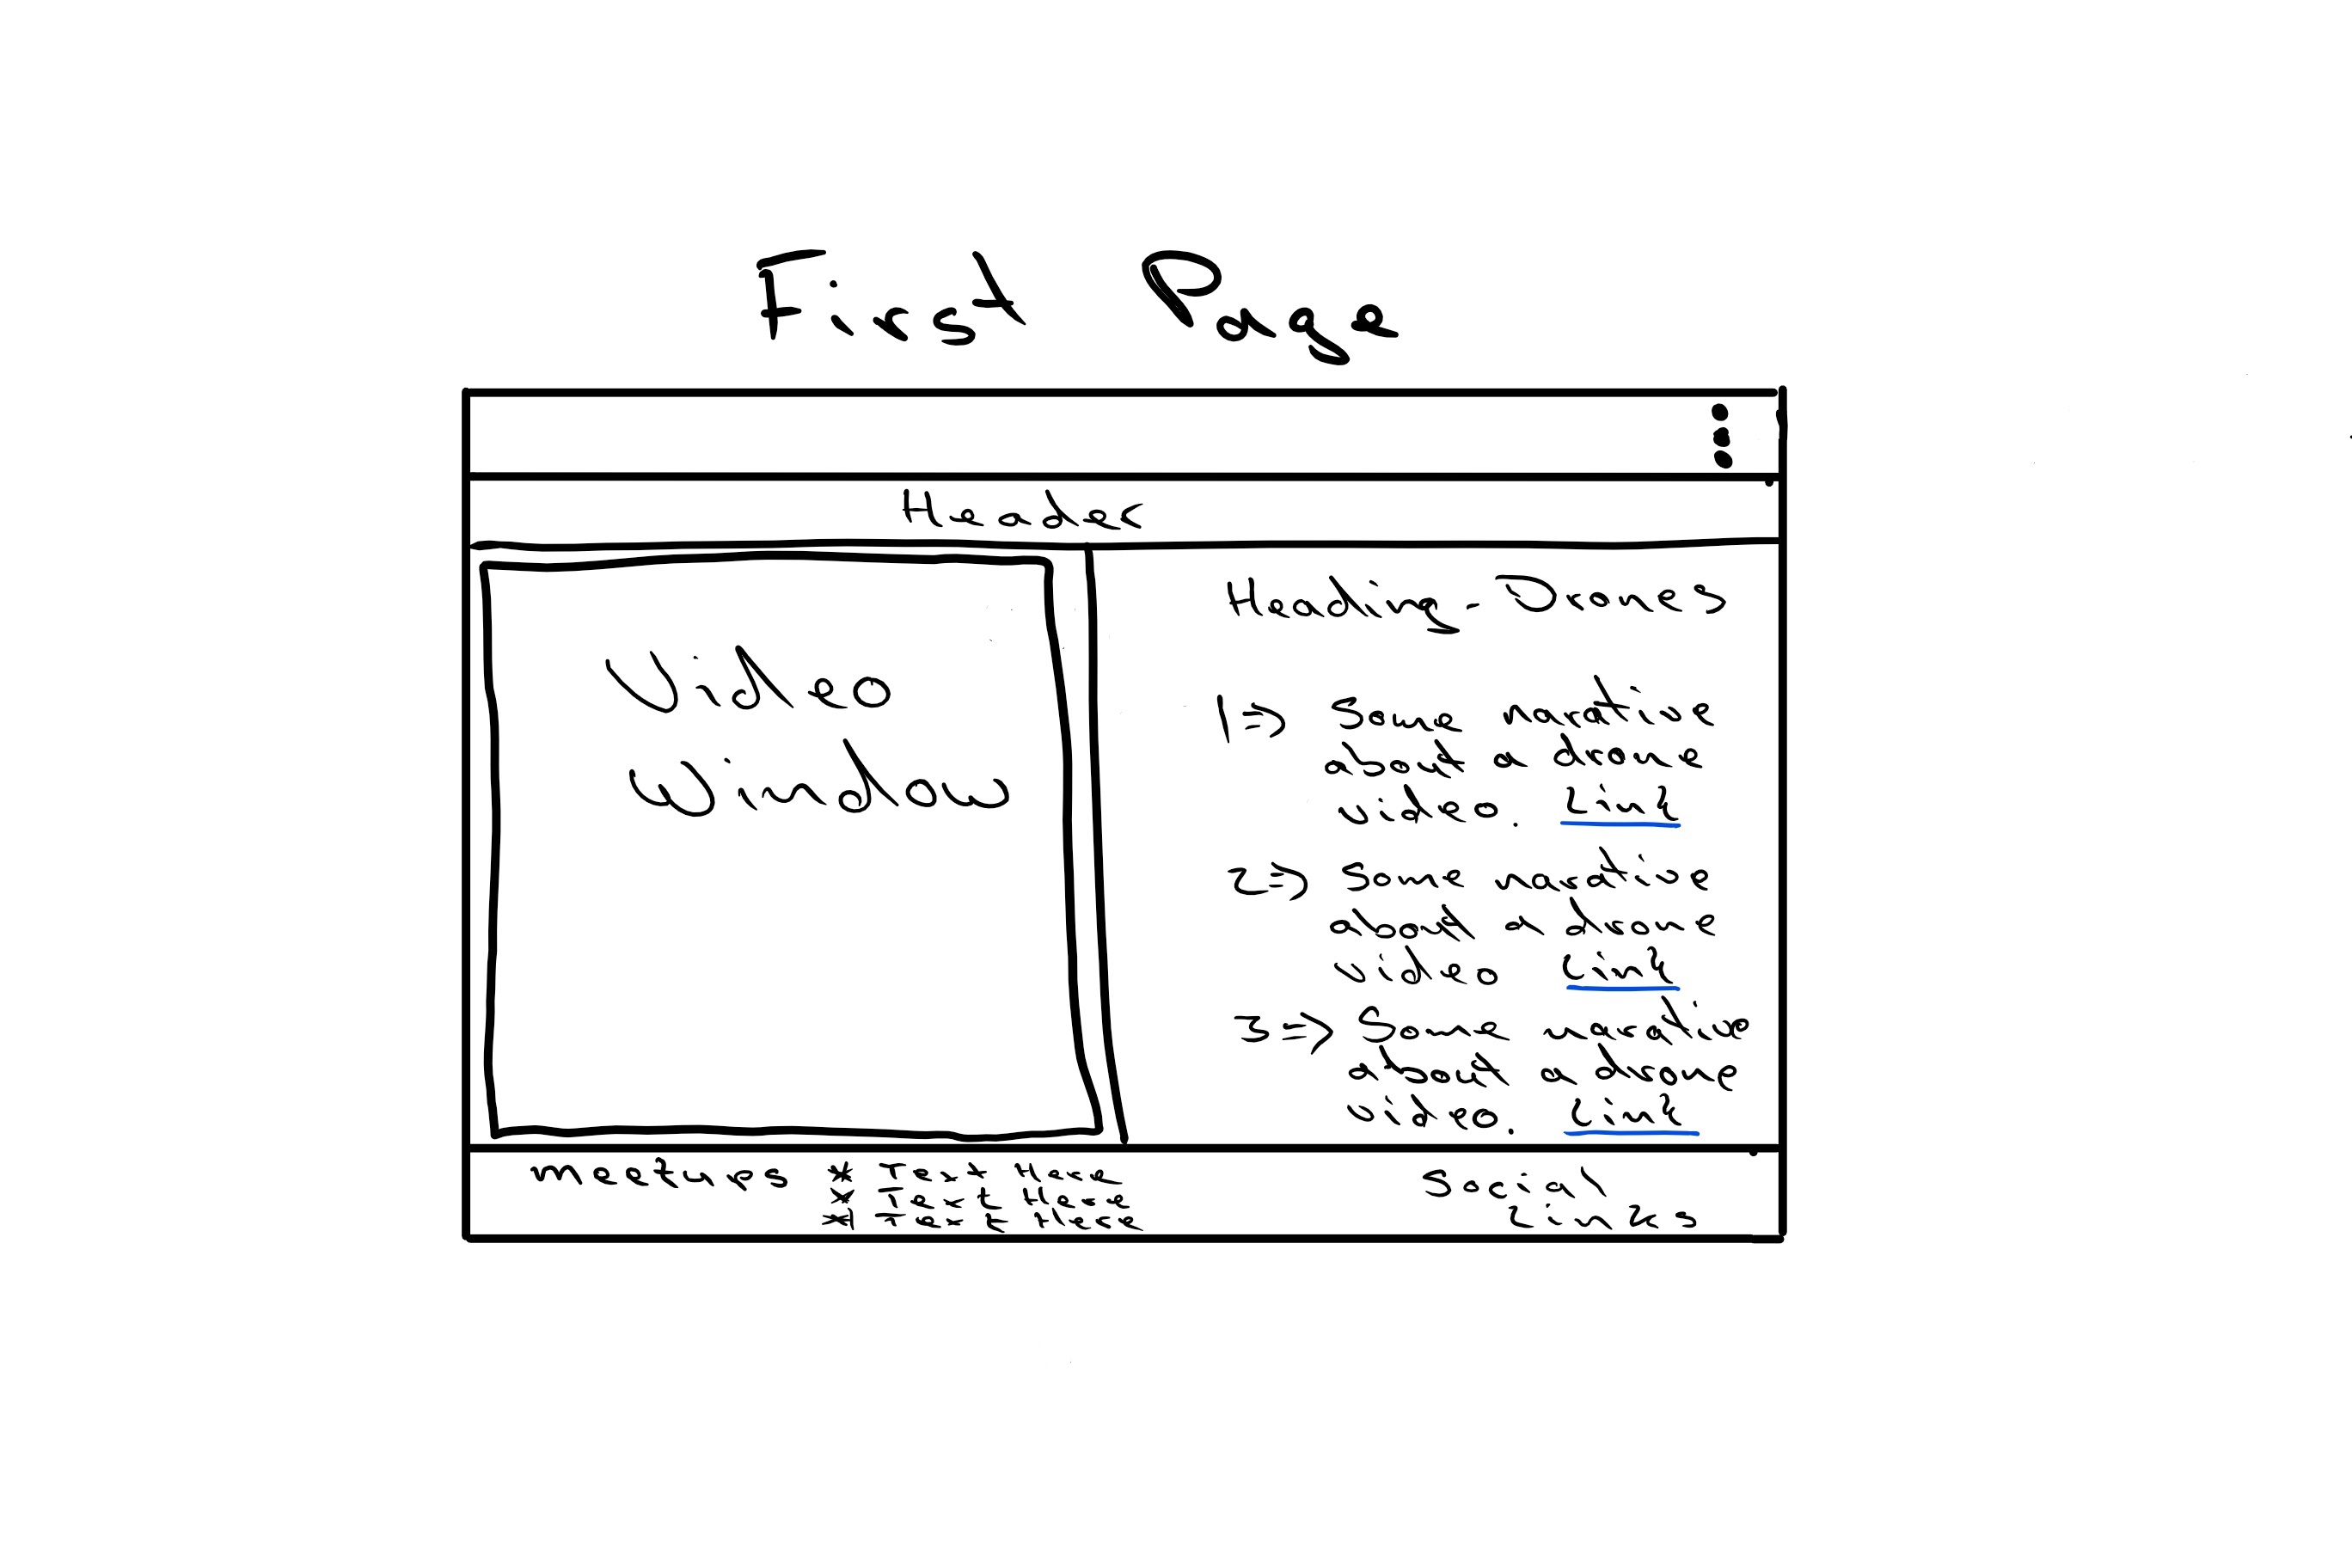 First Page
Header
Video
Window
Heading - Drones
1=> Some narative
about a drone
video. Link
2=> Some narative
about a drone
video Link
3=> Some narative
about a drone
video. Link
* Text Here
* Text Here
* Text Here
Social
Links